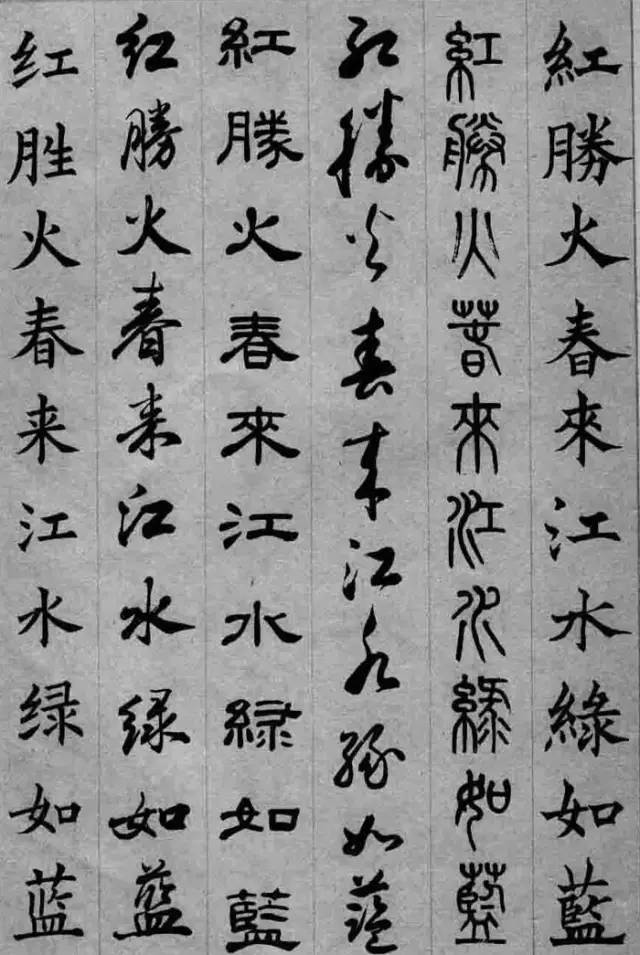 紅勝火春來江水綠如藍
紅勝火春來江水綠如藍
紅勝火春来江水綠如藍
紅勝火春來江水綠如藍
紅勝火春来江水绿如藍
红胜火春来江水绿如蓝